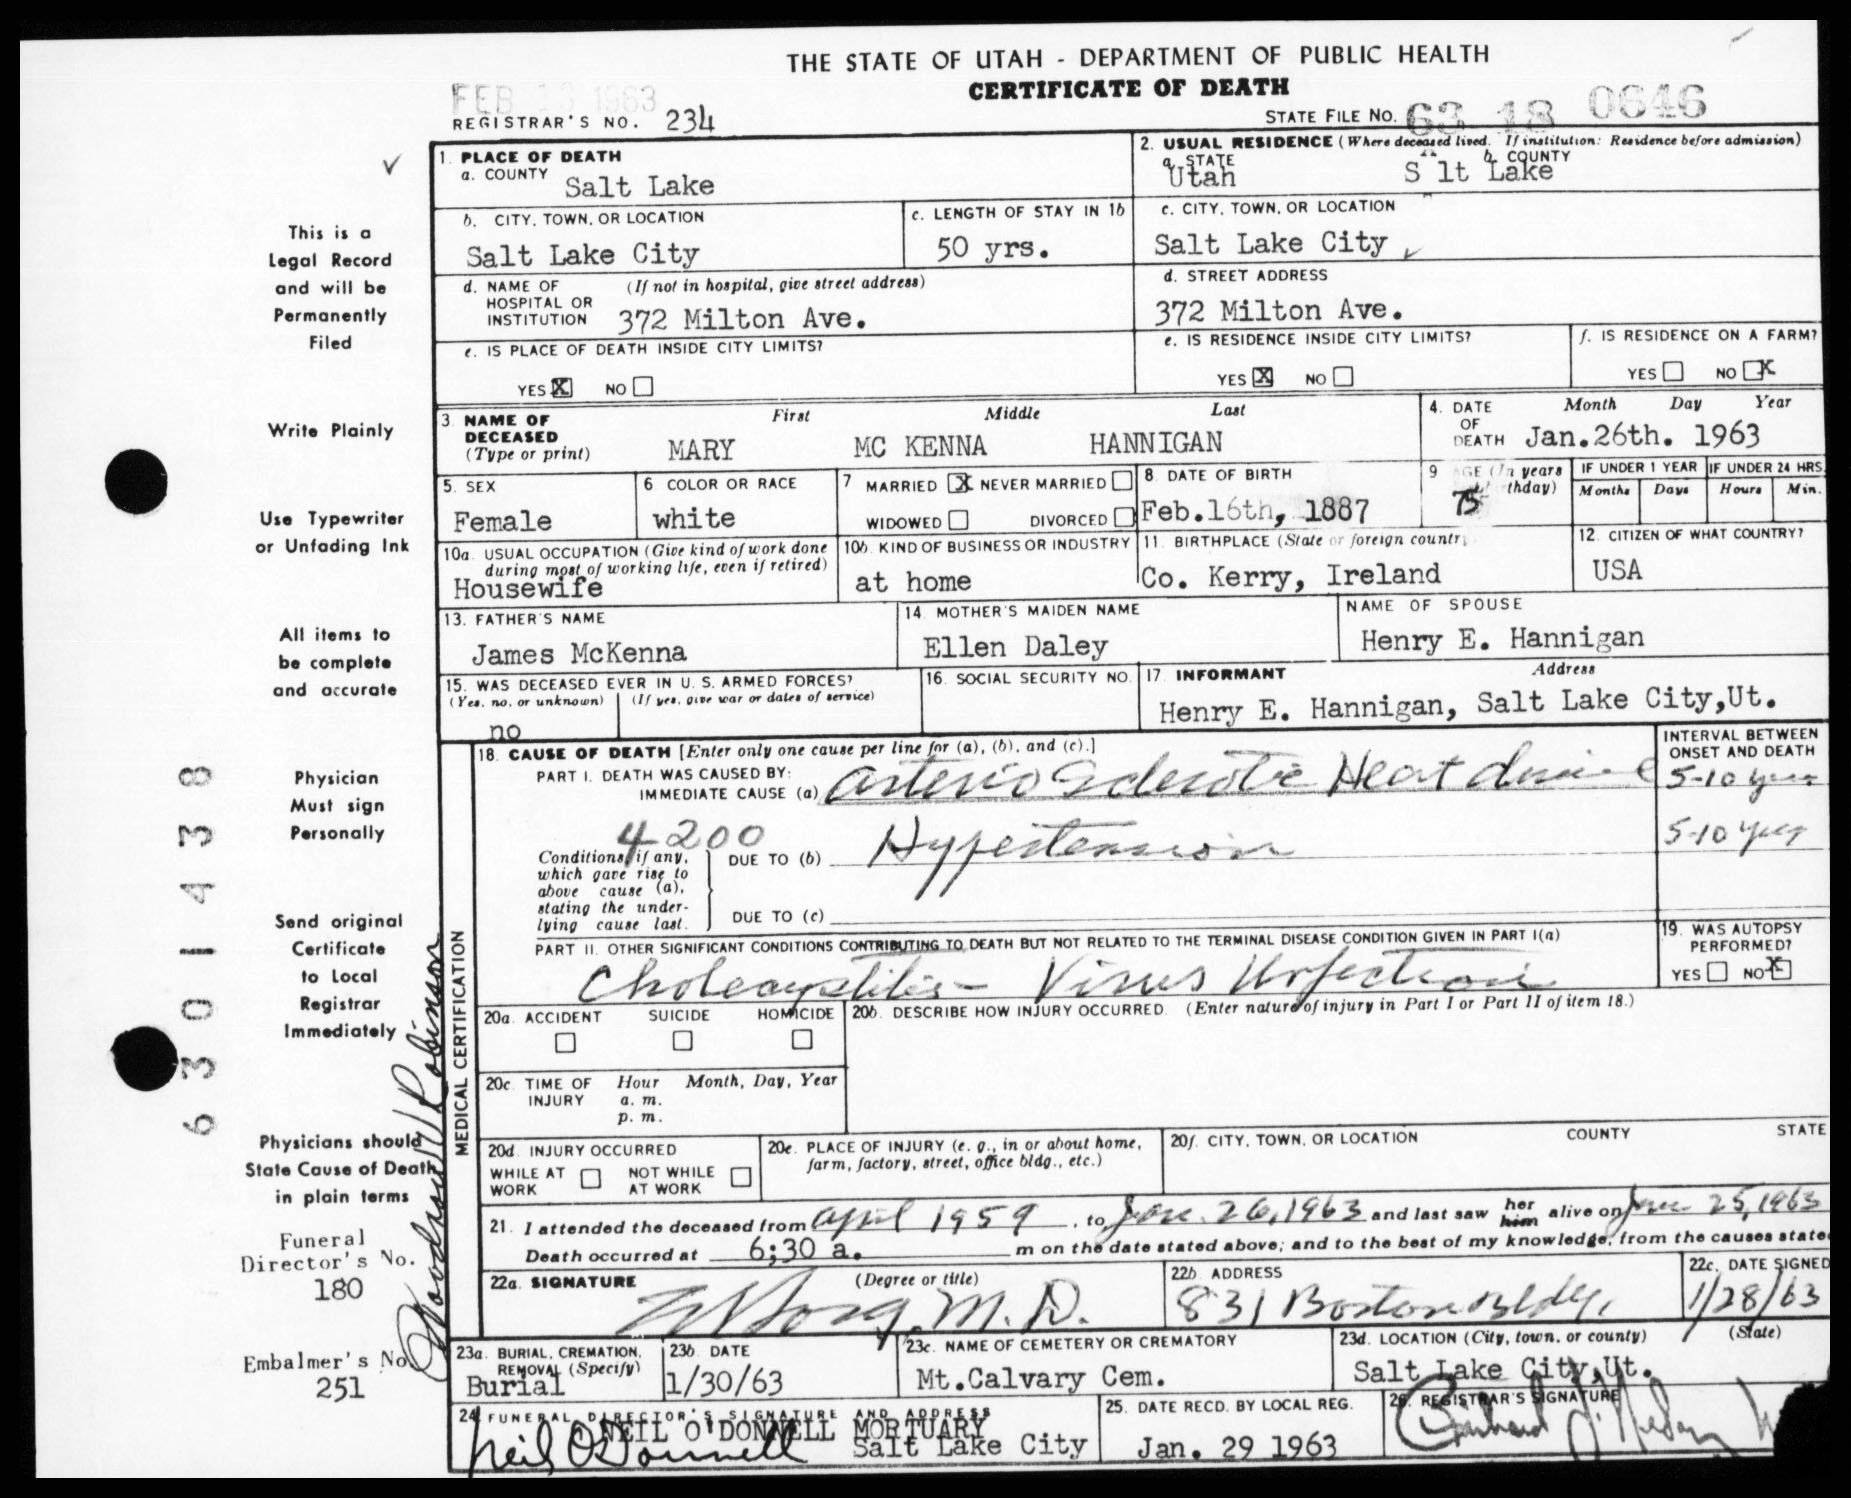 THE STATE OF UTAH - DEPARTMENT OF PUBLIC HEALTH
CERTIFICATE OF DEATH
FEB 13 1963
REGISTRAR'S NO. 234
STATE FILE NO. 63 18 0646
1. PLACE OF DEATH
a. COUNTY Salt Lake
2. USUAL RESIDENCE (Where deceased lived. If institution: Residence before admission)
a. STATE Utah b. COUNTY Salt Lake
b. CITY, TOWN, OR LOCATION Salt Lake City
c. LENGTH OF STAY IN 1b 50 yrs.
c. CITY, TOWN, OR LOCATION Salt Lake City
d. NAME OF HOSPITAL OR INSTITUTION (If not in hospital, give street address) 372 Milton Ave.
d. STREET ADDRESS 372 Milton Ave.
e. IS PLACE OF DEATH INSIDE CITY LIMITS?
YES X NO
e. IS RESIDENCE INSIDE CITY LIMITS?
YES X NO
f. IS RESIDENCE ON A FARM?
YES NO X
3. NAME OF DECEASED (Type or print)
First Middle Last
MARY MC KENNA HANNIGAN
4. DATE OF DEATH Month Day Year
Jan.26th. 1963
5. SEX Female
6 COLOR OR RACE white
7 MARRIED X NEVER MARRIED
WIDOWED DIVORCED
8. DATE OF BIRTH Feb.16th, 1887
9 AGE (In years last birthday) 75
IF UNDER 1 YEAR Months Days
IF UNDER 24 HRS. Hours Min.
10a. USUAL OCCUPATION (Give kind of work done during most of working life, even if retired)
Housewife
10b. KIND OF BUSINESS OR INDUSTRY at home
11. BIRTHPLACE (State or foreign country
Co. Kerry, Ireland
12. CITIZEN OF WHAT COUNTRY?
USA
13. FATHER'S NAME James McKenna
14. MOTHER'S MAIDEN NAME Ellen Daley
NAME OF SPOUSE Henry E. Hannigan
15. WAS DECEASED EVER IN U. S. ARMED FORCES?
(Yes, no, or unknown) (If yes, give war or dates of service)
no
16. SOCIAL SECURITY NO.
17. INFORMANT Address
Henry E. Hannigan, Salt Lake City,Ut.
MEDICAL CERTIFICATION
18. CAUSE OF DEATH [Enter only one cause per line for (a), (b), and (c).]
INTERVAL BETWEEN ONSET AND DEATH
PART I. DEATH WAS CAUSED BY:
IMMEDIATE CAUSE (a) Arterio Sclerotic Heart disease 5-10 years
4200
Conditions, if any, which gave rise to above cause (a), stating the underlying cause last.
DUE TO (b) Hypertension 5-10 years
DUE TO (c)
PART II. OTHER SIGNIFICANT CONDITIONS CONTRIBUTING TO DEATH BUT NOT RELATED TO THE TERMINAL DISEASE CONDITION GIVEN IN PART I(a)
Cholecystitis - Virus Infection
19. WAS AUTOPSY PERFORMED?
YES NO X
20a. ACCIDENT SUICIDE HOMICIDE
20b. DESCRIBE HOW INJURY OCCURRED. (Enter nature of injury in Part I or Part II of item 18.)
20c. TIME OF INJURY Hour Month, Day, Year
a. m.
p. m.
20d. INJURY OCCURRED
WHILE AT WORK NOT WHILE AT WORK
20e. PLACE OF INJURY (e. g., in or about home, farm, factory, street, office bldg., etc.)
20f. CITY, TOWN, OR LOCATION COUNTY STATE
21. I attended the deceased from April 1959, to Jan. 26, 1963 and last saw her him alive on Jan 25, 1963
Death occurred at 6;30 a. m on the date stated above; and to the best of my knowledge, from the causes state
22a. SIGNATURE (Degree or title)
M. D.
22b. ADDRESS 831 Boston Bldg.
22c. DATE SIGNED 1/28/63
23a. BURIAL, CREMATION, REMOVAL (Specify) Burial
23b. DATE 1/30/63
23c. NAME OF CEMETERY OR CREMATORY
Mt.Calvary Cem.
23d. LOCATION (City, town, or county) (State)
Salt Lake City,Ut.
24. FUNERAL DIRECTOR'S SIGNATURE AND ADDRESS
NEIL O'DONNELL MORTUARY
Neil O'Donnell Salt Lake City
25. DATE RECD. BY LOCAL REG.
Jan. 29 1963
26. REGISTRAR'S SIGNATURE
This is a
Legal Record
and will be
Permanently
Filed
Write Plainly
Use Typewriter
or Unfading Ink
All items to
be complete
and accurate
Physician
Must sign
Personally
Send original
Certificate
to Local
Registrar
Immediately
Physicians should
State Cause of Death
in plain terms
Funeral
Director's No.
180
Embalmer's No.
251
6301438
Robinson